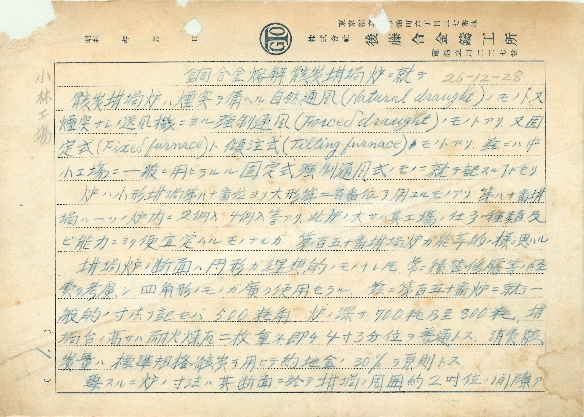 株式會社 後藤合金鑄工所
昭和 年 月 日
小林工場
銅合金熔解骸炭坩堝炉ニ就テ 26-12-28
骸炭坩堝炉ハ煙突ヲ備ヘル自然通風(Natural draught)ノモノト又
煙突ナシノ送風機ニヨル強制通風(Forced draught)ノモノアリ 又固
定式(Fixed furnace)ト傾注式(Tilling furnace)ノモノアリ 茲ニハ中
小工場ニ一般ニ用ヒラルル固定式強制通風式ノモノニ就テ記スルトセリ
炉ハ小形坩堝第八十番位ヨリ大形第二百番位ヲ用エルモノアリ 第八十番坩
堝ハ一ツノ炉内ニ2個入4個入等アリ 此炉ノ大サハ其工場ノ仕事ノ種類及
ビ能力ニヨリ便宜定ムルモノナルガ 第百五十番坩堝炉ガ能率的ノ様ニ思ハル
坩堝炉ノ断面ハ円形ガ理想的ノモノナレ 築積替修膳等ノ経
費ヲ考慮シ四角形ノモノガ廣ク使用セラル 第百五十番炉ニ就テ一
般的ノ寸法ヲ記セバ 500粍角 炉ノ深サ700粍乃至800粍、坩
堝台ノ高サハ耐火煉瓦二枚重ネ即チ4寸3分位ヲ普通トス 消費骸
炭量ハ標準規格骸炭ヲ用ヒテ約地金ノ30%ヲ原則トス
要スルニ炉ノ寸法ハ其断面ニ於テ坩堝ノ周囲約2吋位ノ間隙ア